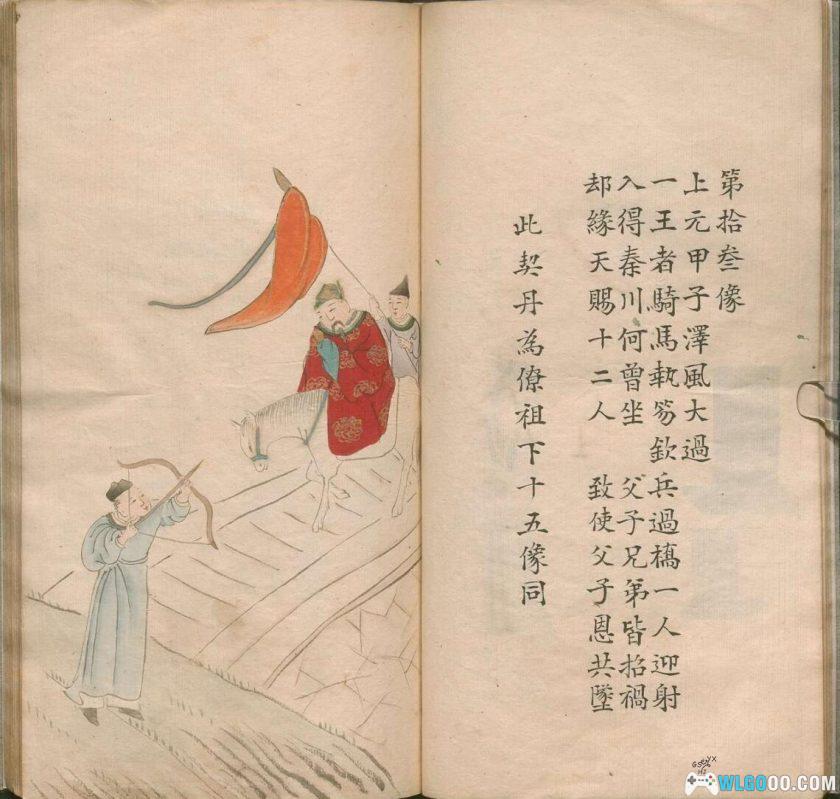 第拾叄像
上元甲子澤風大過
一王者騎馬執笏欽兵過橋一人迎射
入得秦川何曾坐　父子兄弟皆招禍
却緣天賜十二人　致使父子恩共墜
此契丹為僚祖下十五像同
WLGOOO.COM